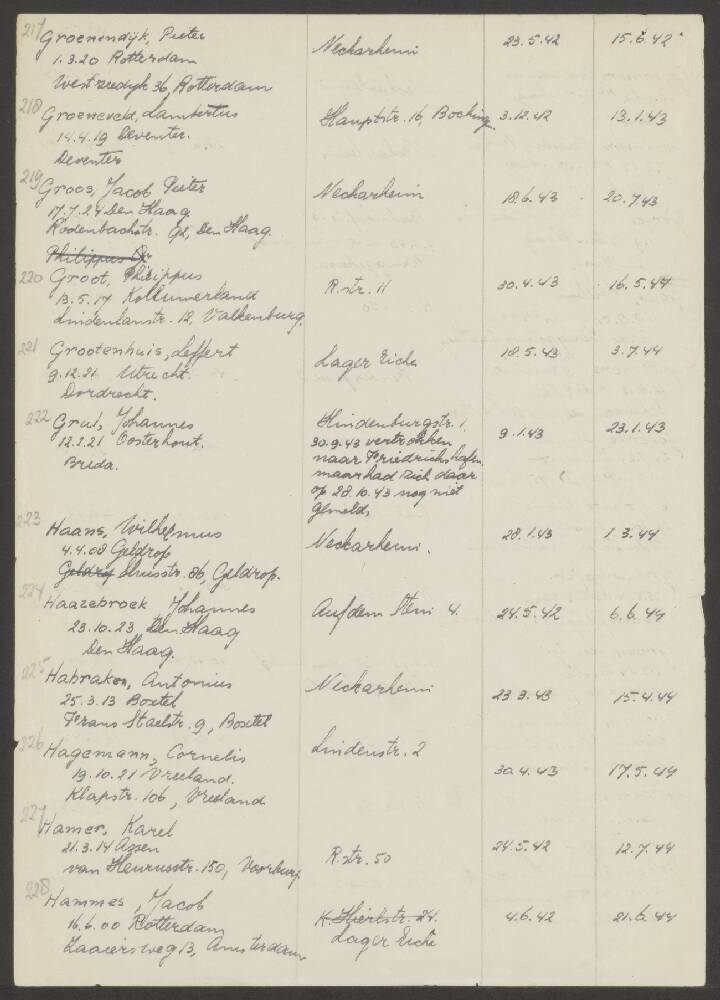 217 Groenendijk, Pieter Neckarheim 23.5.42 15.6.42
1.3.20 Rotterdam
Westzeedijk 36, Rotterdam
218 Groeneveld, Lambertus Hauptstr. 16, Böcking. 3.12.42 13.1.43
14.4.19 Deventer.
Deventer
219 Groos, Jacob Pieter Neckarheim 18.6.43 20.7.43
17.7.24 Den Haag
Rodenbachstr. 92, Den Haag
Philippus Gr
220 Groot, Philippus R.str. 11 30.4.43 16.5.44
13.5.17 Kollumerland
Lindenlaanstr. 12, Valkenburg.
221 Grootenhuis, Leffert Lager Eiche 18.5.43 3.7.44
9.12.21 Utrecht.
Dordrecht.
222 Grul, Johannes Hindenburgstr. 1. 9.1.43 23.1.43
12.2.21 Oosterhout. 30.9.43 vertrokken
Breda. naar Friedrichshafen,
maar had zich daar
op 28.10.43 nog niet
gemeld.
223 Haans, Wilhelmus Neckarheim. 28.1.43 1.3.44
4.4.08 Geldrop
Geldrop Sluisstr. 86, Geldrop.
224 Haazebroek Johannes Auf dem Stein 4. 24.5.42 6.6.44
23.10.23, Den Haag
Den Haag.
225 Habraken, Antonius Neckarheim 23.3.43 15.4.44
25.3.13 Boxtel
Frans Staelstr. 9, Boxtel
226 Hagemann, Cornelis Lindenstr. 2 30.4.43 17.5.44
19.10.21 Vreeland.
Klapstr. 106, Vreeland.
227 Hamer, Karel R.str. 50 24.5.42 12.7.44
21.3.14 Assen
van Heurnstr. 150, Voorburg
228 Hammes, Jacob K. Hierlstr. 21. 4.6.42 21.6.44
16.6.00 Rotterdam Lager Eiche
Zaaiersweg 13, Amsterdam